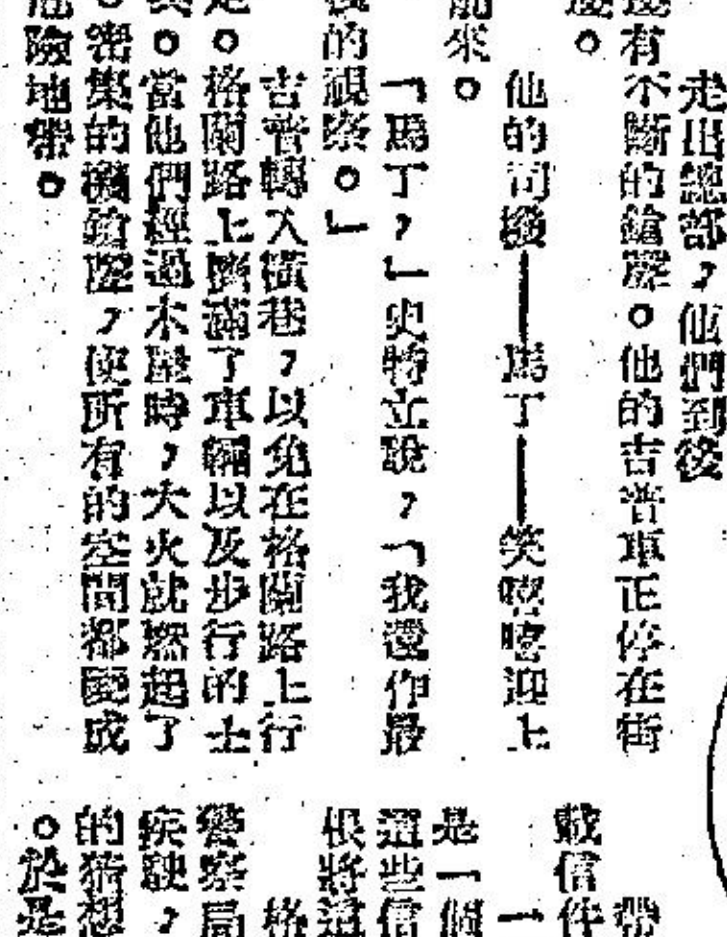 走出總部,他們到後
邊有不斷的鎗聲。他的吉普車正停在街
邊。
他的司機——馬丁——笑嘻嘻迎上
前來。
「馬丁,」史特立說,「我還作最
後的視察。」
吉普轉入橫巷,以免在格蘭路上行
走。格蘭路上擠滿了車輛以及步行的士
兵。當他們經過木屋時,大火就燃起了
。密集的機鎗聲,使所有的空間都變成
危險地帶。
帶
載信件
一
是一個
這些信
根將這
格
警察局
疾駛,
的猜想
。於是